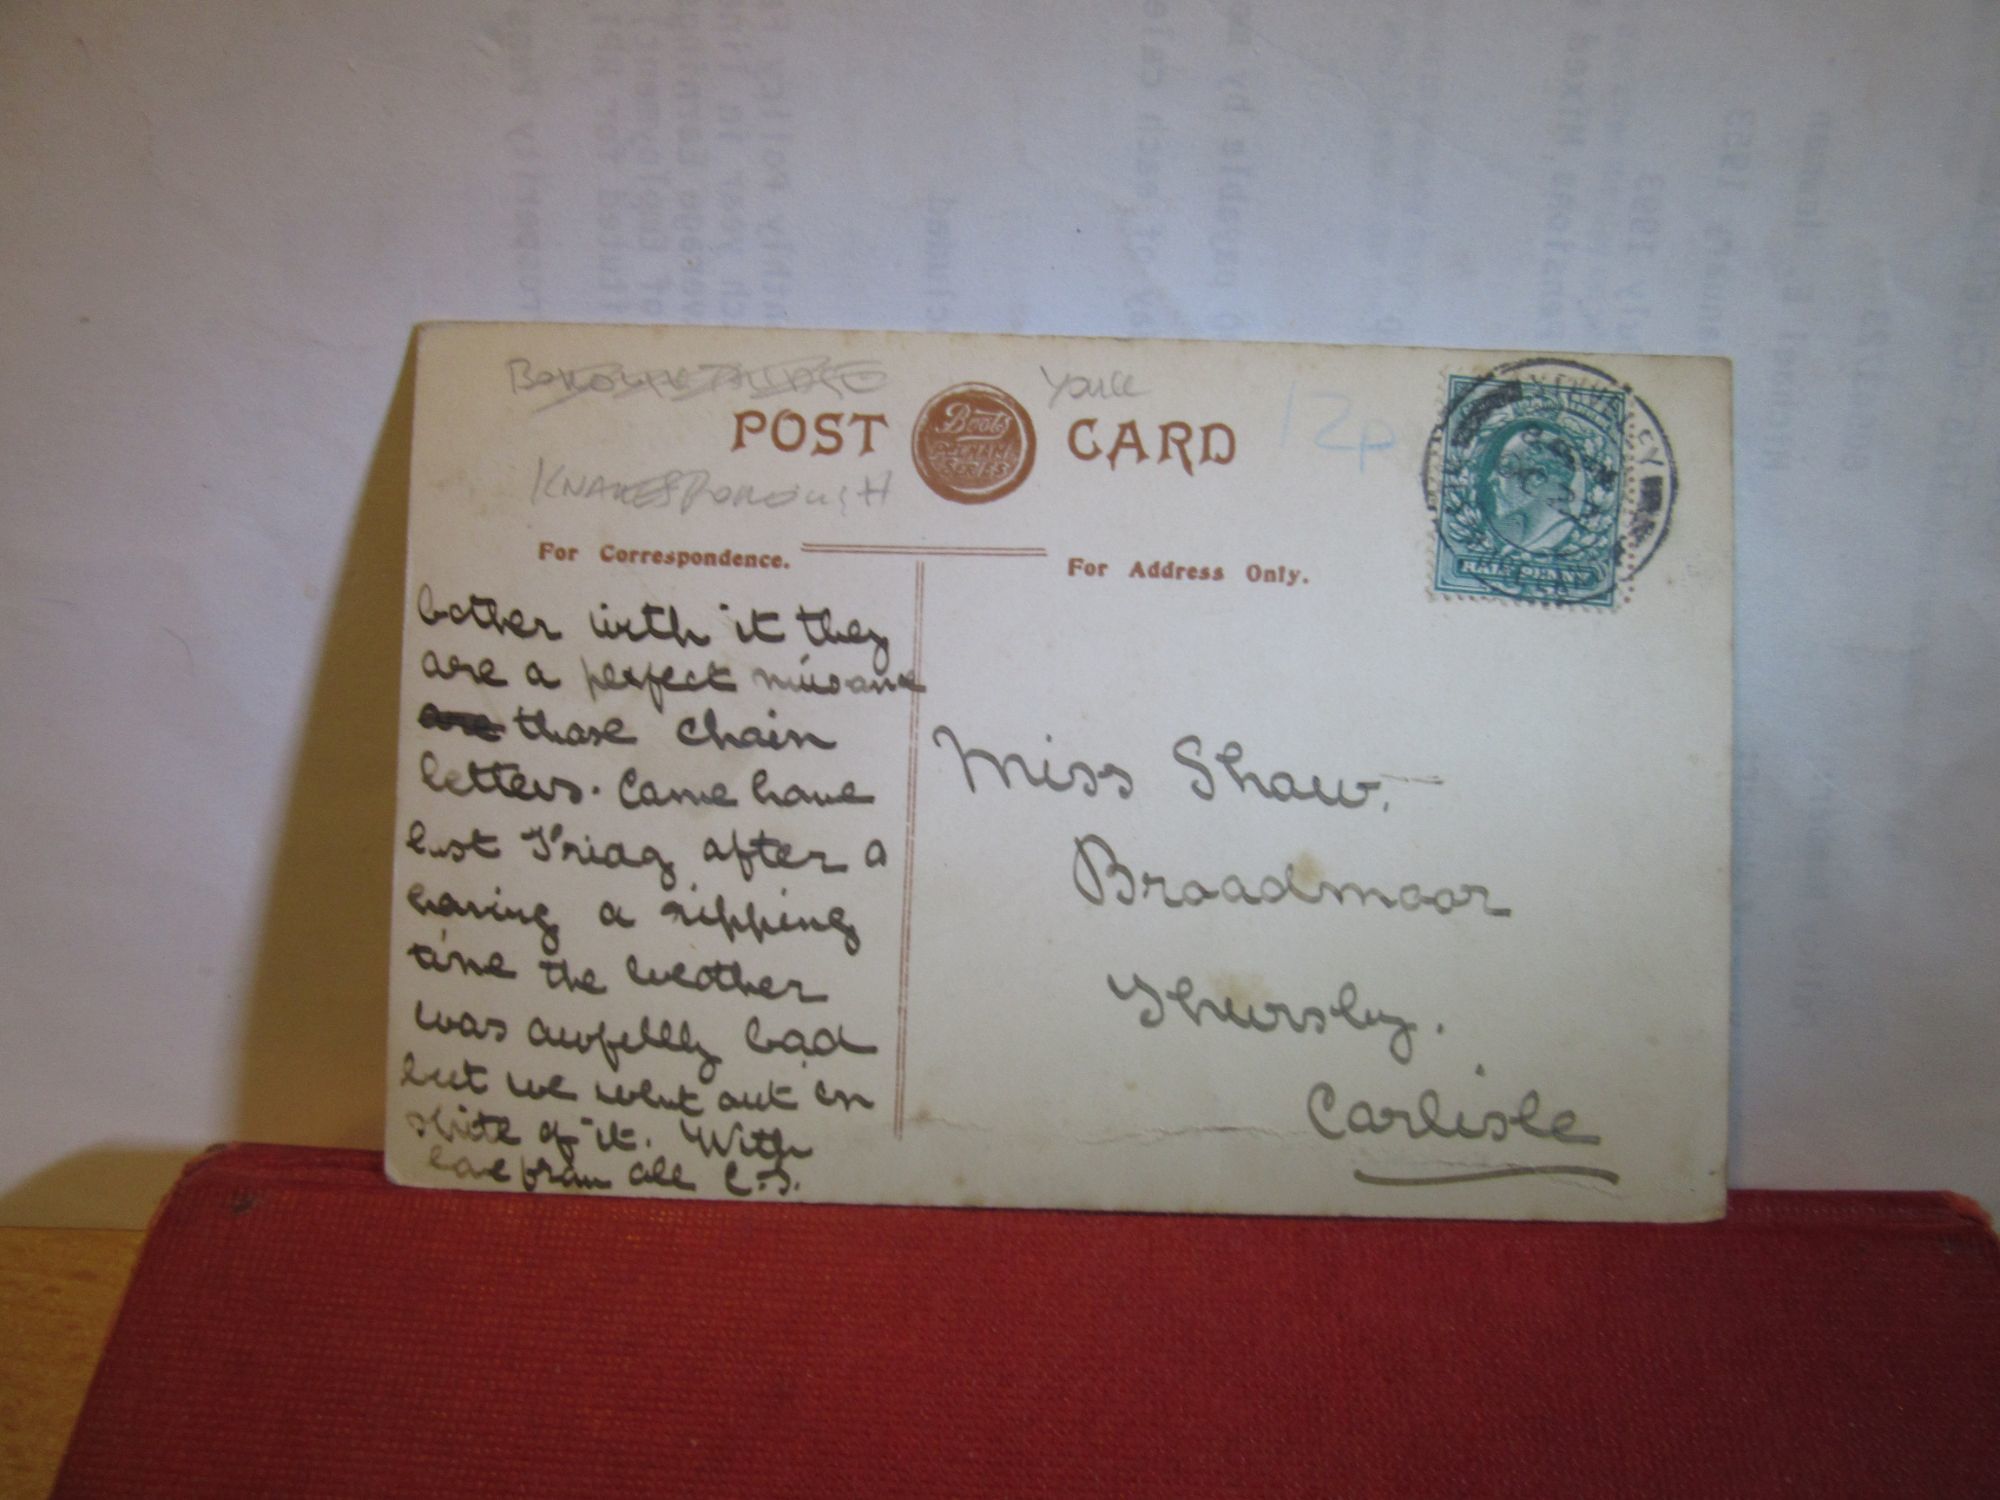 KNARESBOROUGH
POST CARD
Boots
PELHAM
SERIES
12p
HALF PENNY
For Correspondence.
For Address Only.
bother with it they
are a perfect nuisance
are those chain
letters. Came home
last Friday after a
having a ripping
time the weather
was awfully bad
but we went out in
spite of it. With
love from all C.S.
Miss Shaw.
Broadmoor
Thursby.
Carlisle